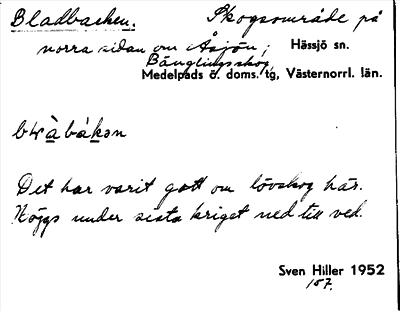 Bladbacken. Skogsområde på
norra sidan om Åsjön; Hässjö sn.
Bänglingsskog,
Medelpads ö. doms. tg, Västernorrl. län.
Det har varit gott om lövskog här.
Höggs under sista kriget ned till ved.
Sven Hiller 1952
157.